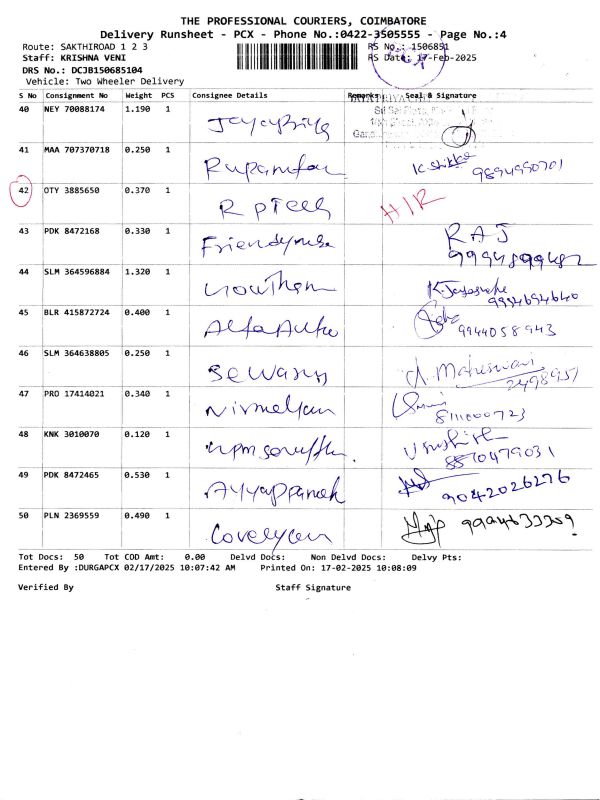 THE PROFESSIONAL COURIERS, COIMBATORE
Delivery Runsheet - PCX - Phone No.:0422-3505555 - Page No.:4
Route: SAKTHIROAD 1 2 3 RS No.: 1506851
Staff: KRISHNA VENI RS Date: 17-Feb-2025
DRS No.: DCJB150685104
Vehicle: Two Wheeler Delivery
S No Consignment No Weight PCS Consignee Details Remarks Seal & Signature
40 NEY 70088174 1.190 1 Jayapriya
41 MAA 707370718 0.250 1
42 OTY 3885650 0.370 1 R PTech
43 PDK 8472168 0.330 1 RAJ
44 SLM 364596884 1.320 1 Gowtham 9994694640
45 BLR 415872724 0.400 1 Alfa Auto 9944058943
46 SLM 364638805 0.250 1 d. Maheswari
2498951
47 PRO 17414021 0.340 1 8111000723
48 KNK 3010070 0.120 1 8870479031
49 PDK 8472465 0.530 1 Ayyappan 9042026276
50 PLN 2369559 0.490 1
Tot Docs: 50 Tot COD Amt: 0.00 Delvd Docs: Non Delvd Docs: Delvy Pts:
Entered By :DURGAPCX 02/17/2025 10:07:42 AM Printed On: 17-02-2025 10:08:09
Verified By Staff Signature